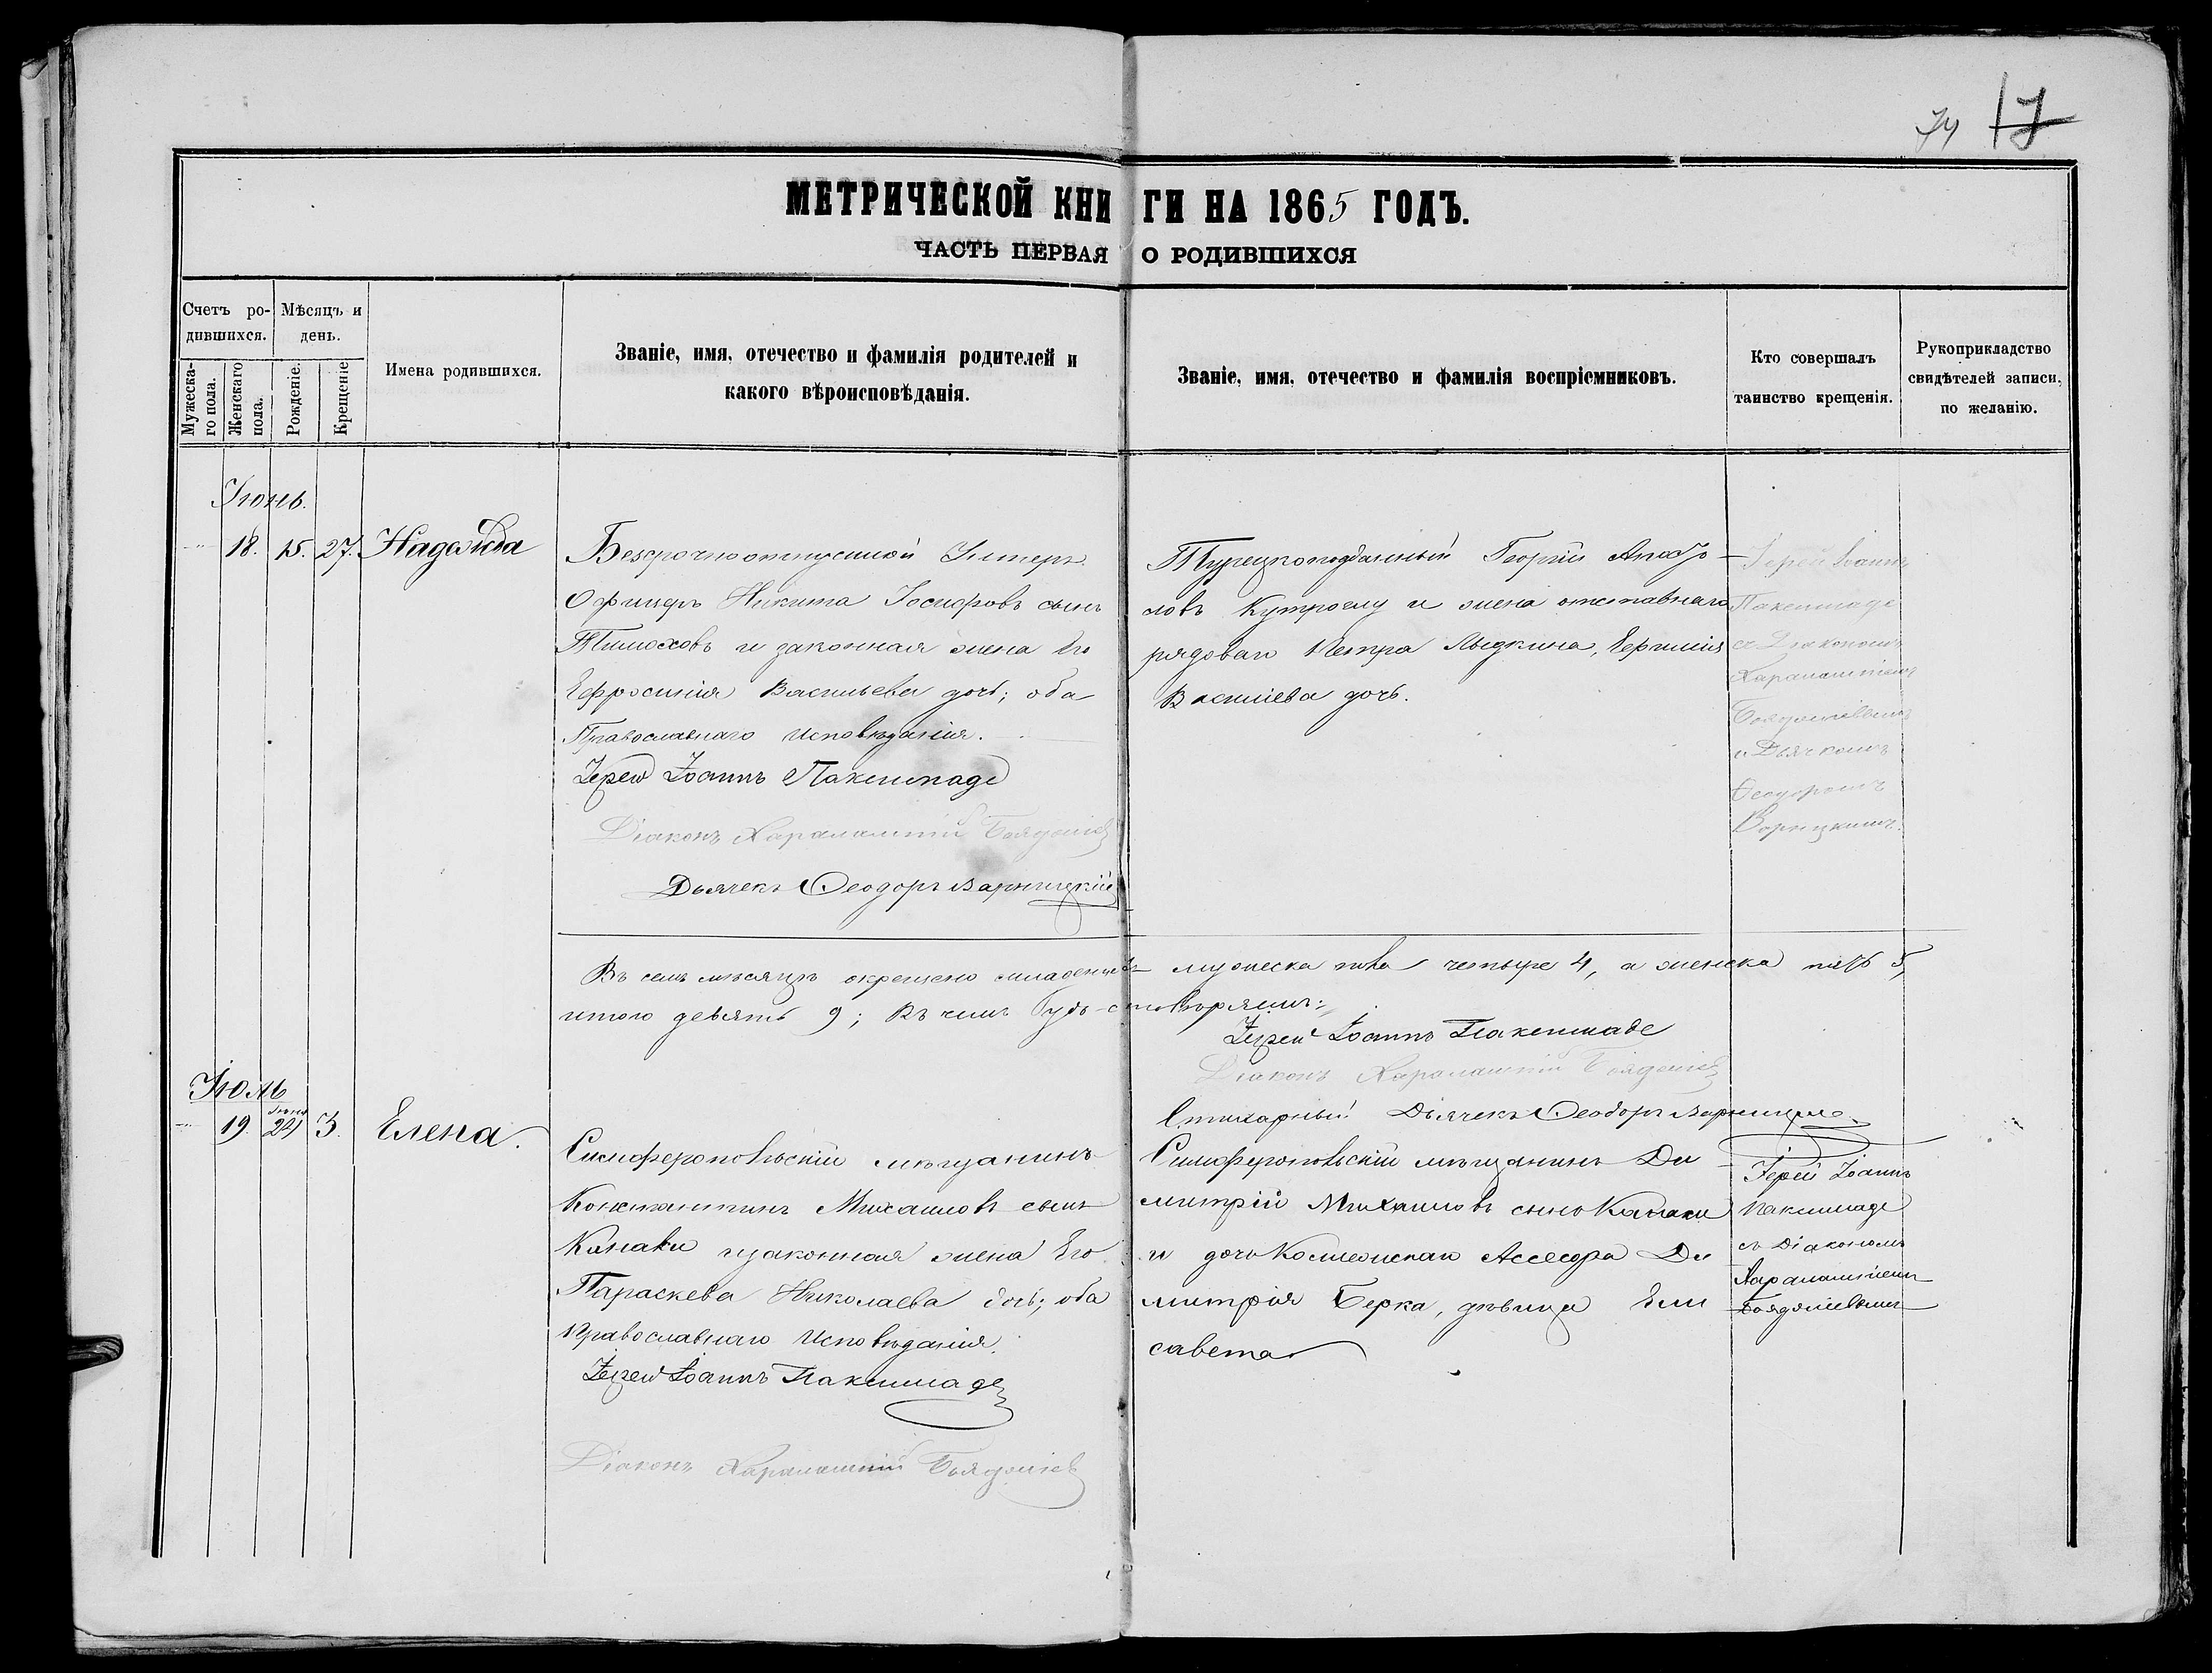 74 17
МЕТРИЧЕСКОЙ КНИГИ НА 1865 ГОДЪ.
ЧАСТЬ ПЕРВАЯ О РОДИВШИХСЯ
Счетъ ро-
дившихся.
Мужеска-
го пола.
Женскаго
пола.
Мѣсяцъ и
день.
Рожденіе.
Крещеніе
Имена родившихся.
Званіе, имя, отечество и фамилія родителей и
какого вѣроисповѣданія.
Званіе, имя, отечество и фамилія воспріемниковъ.
Кто совершалъ
таинство крещенія.
Рукоприкладство
свидѣтелей записи,
по желанію.
Іюнь.
18. 15. 27. Надежда
Безсрочноотпускной Унтеръ
Офицеръ Никита Іосифовъ сынъ
Тимоховъ и законная жена его
Ефросинія Васильева дочь; оба
Православнаго Исповѣданія.
Іерей Іоаннъ Паксимаде
Діаконъ Харалампій Бояджіев
Дьячекъ Ѳеодоръ Варницкій
Турецкоподданный Георгій Апосто-
ловъ и жена отставнаго
рядоваго Петра
Василіева дочь.
Іерей Іоаннъ
Паксимаде
съ Діакономъ
Харалампіемъ
Бояджіевымъ
и Дьячкомъ
Ѳеодоромъ
Варницкимъ.
Въ семъ мѣсяцѣ окрещено младенцевъ мужеска пола четыре 4, а женска пять 5,
итого девять 9; Въ чемъ
Іерей Іоаннъ Паксимаде
Діаконъ Харалампій Бояджіев
Стихарный Дьячекъ Ѳеодоръ Варницкій
Іюль
19. Іюня 24 3. Елена.
Симферопольскій мѣщанинъ
Константинъ Михаиловъ сынъ
Канаки и законная жена Его
Параскева Николаева дочь; оба
Православнаго Исповѣданія.
Іерей Іоаннъ Паксимаде
Діаконъ Харалампій Бояджіев
Симферопольскій мѣщанинъ Ди-
митрій Михаиловъ сынъ Канаки
и дочь Коллежскаго Асессора Ди
митрія Берка, дѣвица Ели
савета
Іерей Іоаннъ
Паксимаде
съ Діакономъ
Харалампіемъ
Бояджіевымъ